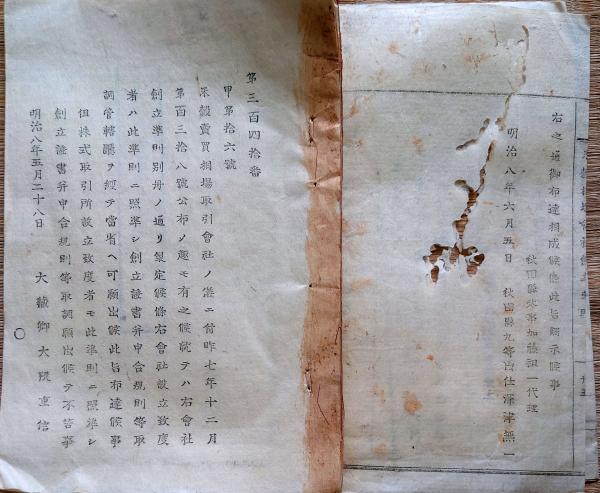 右之通御布達相成候條此旨顯示候事
秋田縣參事加藤祖一代理
明治八年六月五日 秋田縣九等出仕深津無一
第三百四拾番
甲第拾六號
米穀賣買相場取引會社ノ儀ニ付昨七年十二月
第百三拾八號公布ノ趣モ有之候就テハ右會社
創立準則別册ノ通リ製定候條右會社設立致度
者ハ此準則ニ照準シ創立證書并申合規則等取
調管轄廳ヲ經テ當省ヘ可願出候此旨布達候事
但株式取引所設立致度者モ此準則ニ照準シ
創立證書并申合規則等取調願出候テ不苦事
明治八年五月二十八日 大藏卿大隈重信